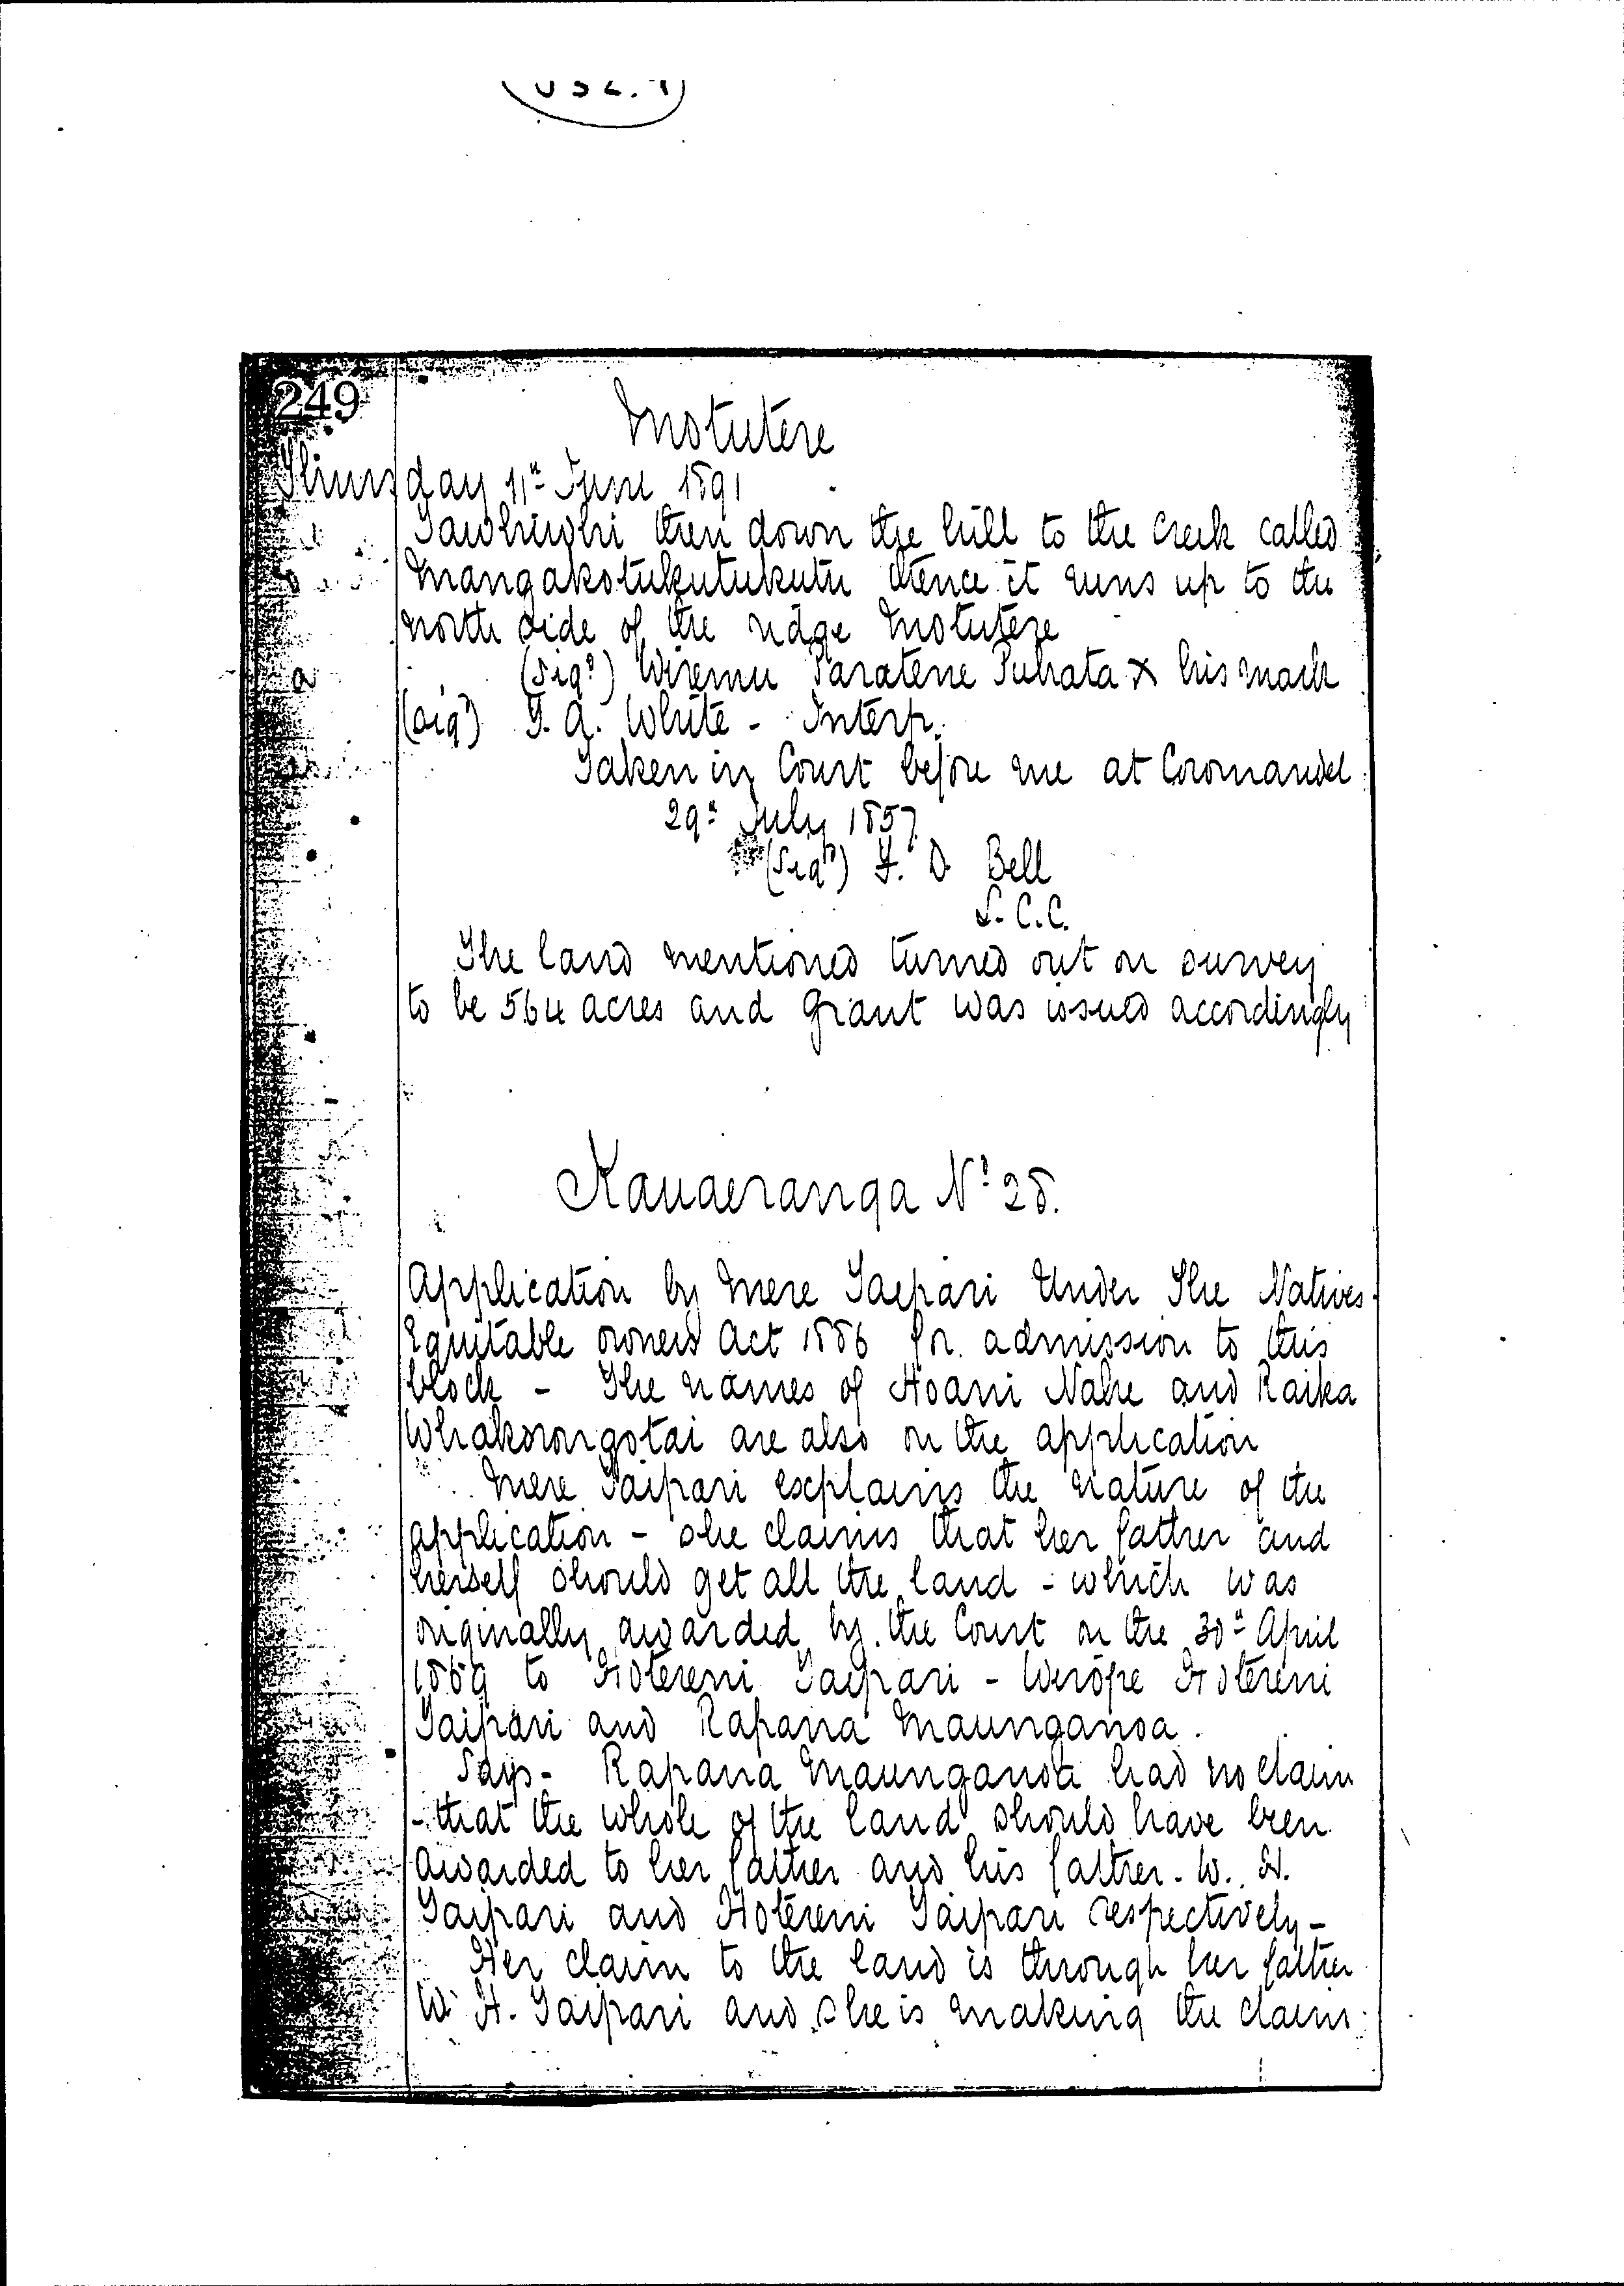 249
Motutere
Thursday 11th June 1891
Tawhiwhi then down the hill to the creek called
Mangakotukutukutu thence it runs up to the
north side of the ridge Motutere
(Sigd) Wiremu Paratene Puhata x his mark
(Sigd) T. A. White - Interp.
Taken in Court before me at Coromandel
29th July 1857
(Sigd) F. D Bell
L. C. C.
The land mentioned turned out on survey
to be 564 acres and Grant was issued accordingly
Kauaeranga No 28.
Application by Mere Taipari Under The Natives
Equitable owners Act 1886 for admission to this
block - The names of Hoani Nahe and Raika
Whakarongotai are also on the application
Mere Taipari explains the nature of the
application - She claims that her father and
herself should get all the land - which was
originally awarded by the Court on the 30th April
1869 to Hotereni Taipari - Wirope Hotereni
Taipari and Rapana Maunganoa.
Says - Rapana Maunganoa had no claim
- that the whole of the land should have been
awarded to her father and his father. W. H.
Taipari and Hotereni Taipari respectively -
Her claim to the land is through her father
W. H. Taipari and she is making the claim